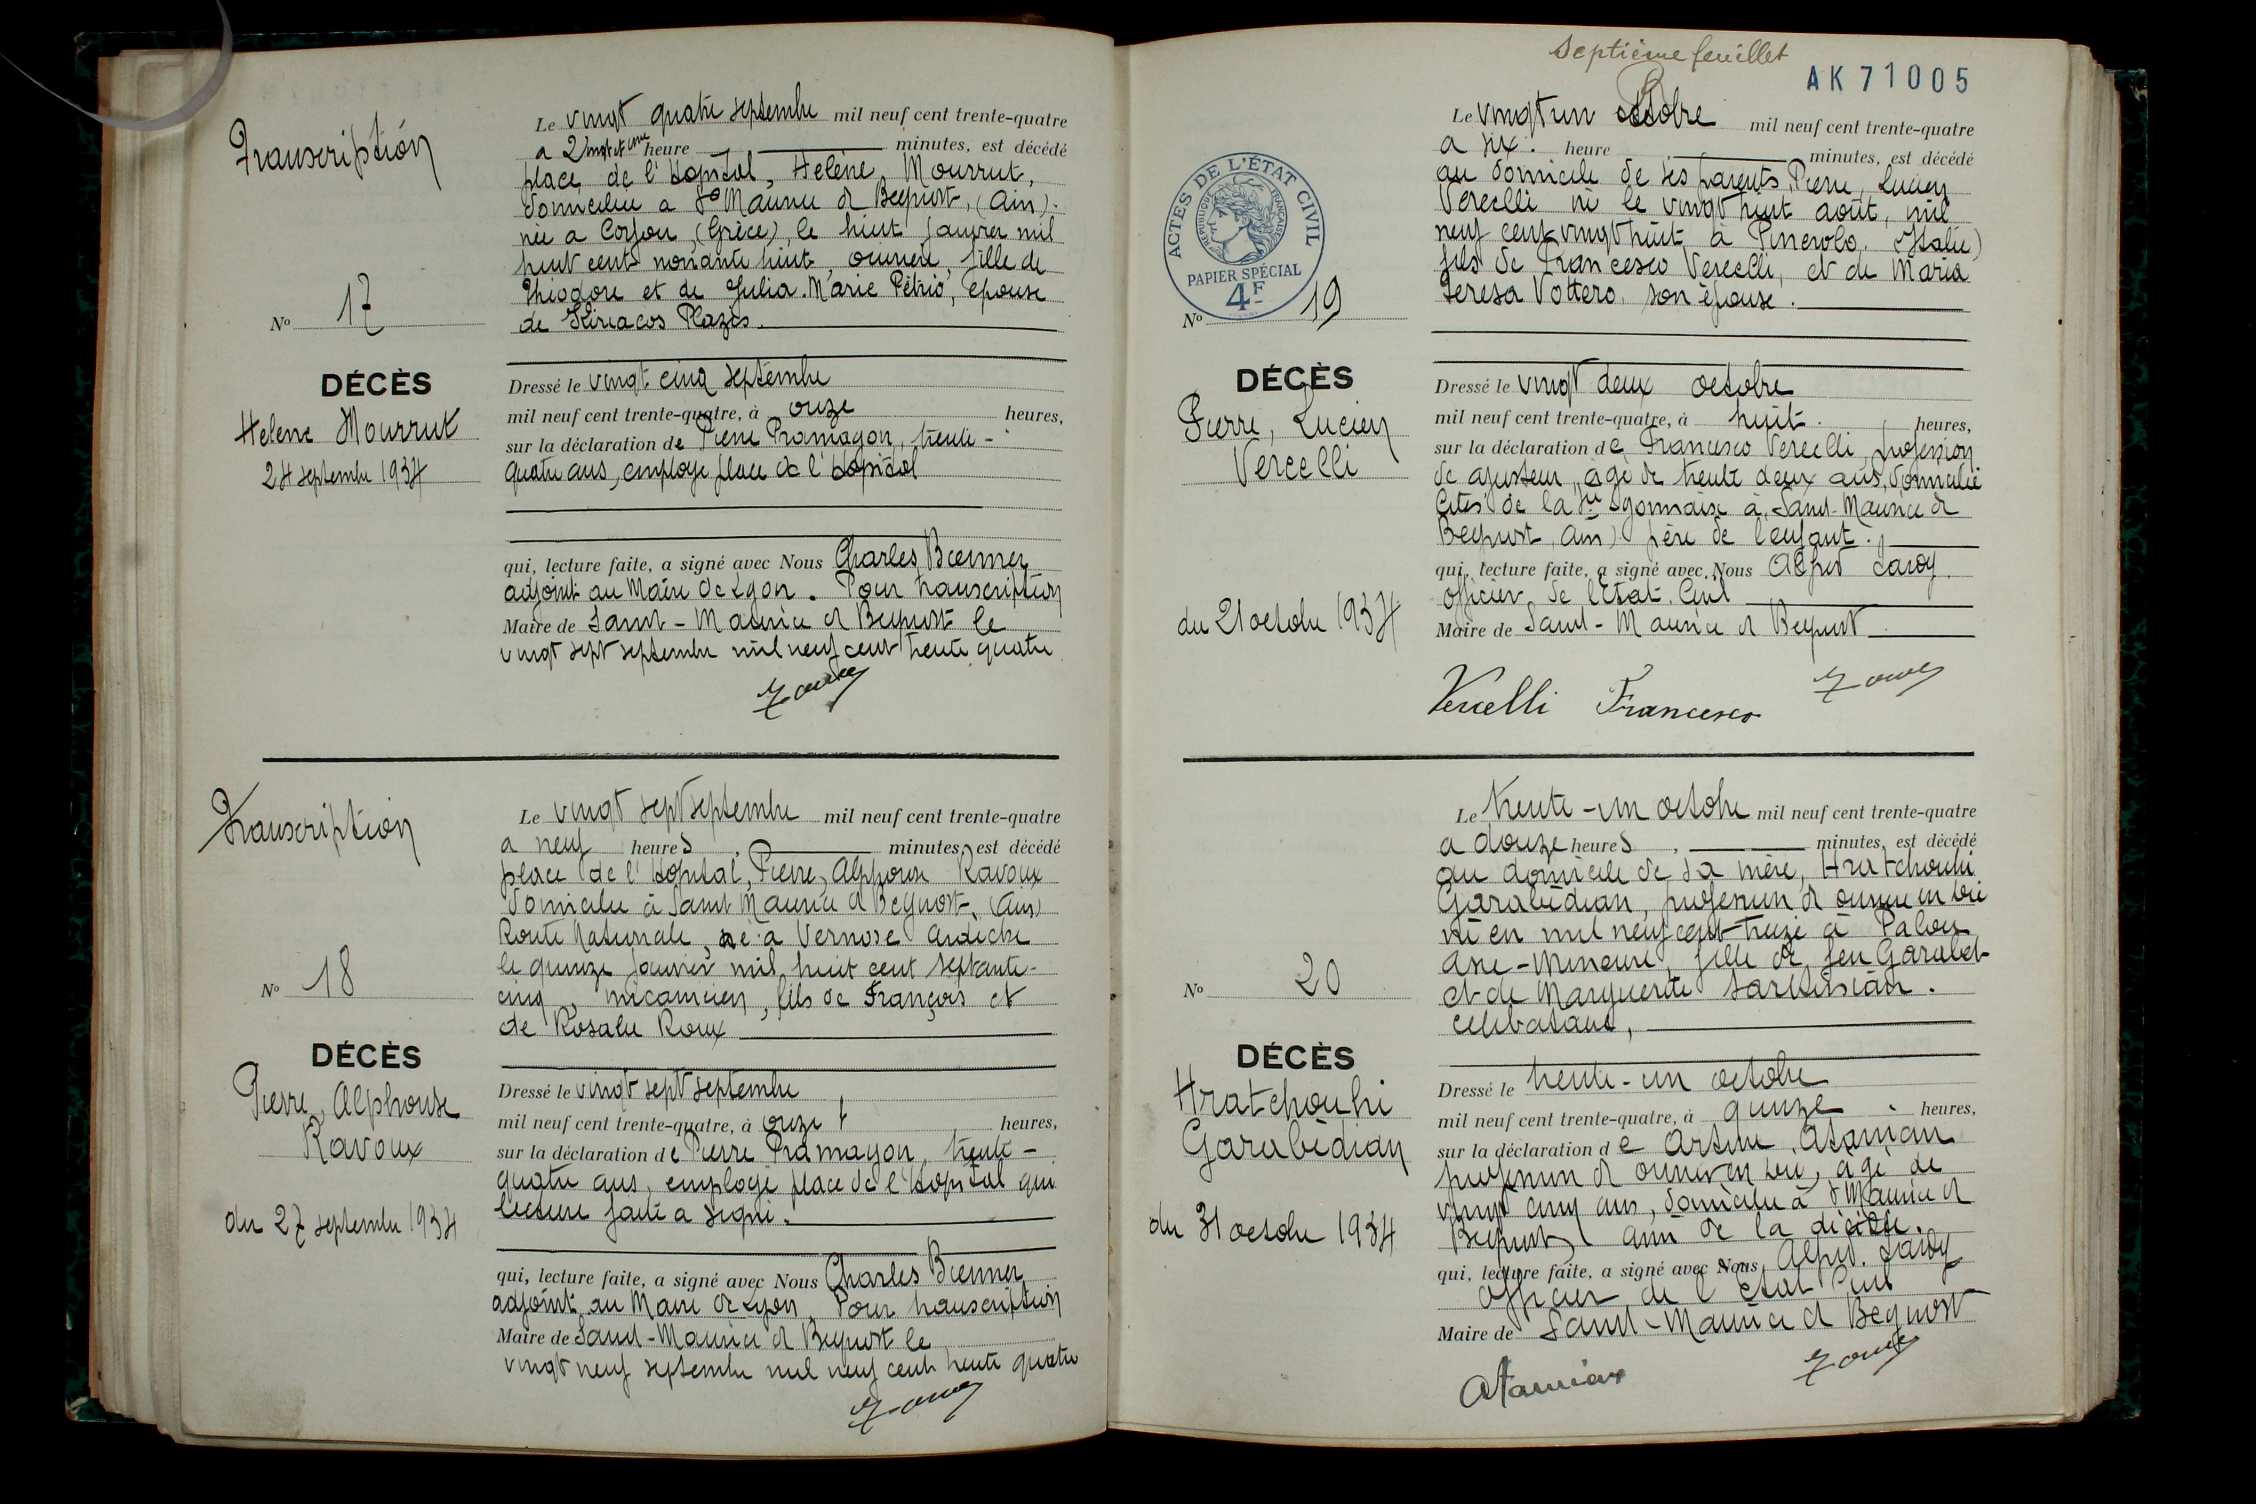 Transcription
Le vingt quatre septembre mil neuf cent trente-quatre
a vingt et une heure minutes, est décédé
place de l'Hopital, Helène Mourrut,
domiciliée a St Maurice d Beynost, (Ain).
née a Corfou, (Grèce), le huit janvier mil
huit cent nonante huit, ouvrière, fille de
Théodore et de Julia. Marie Pétrio, epouse
de Kiriacos Plazos.
No 17
DÉCÈS
Helene Mourrut
24 septembre 1934
Dressé le vingt cinq septembre
mil neuf cent trente-quatre, à onze heures,
sur la déclaration de Pierre Pramayon, trente-
quatre ans, employé place de l'Hopital
qui, lecture faite, a signé avec Nous Charles Brenner
adjoint au Maire de Lyon. Pour transcription
Maire de Saint-Maurice d Beynost le
vingt sept septembre mil neuf cent trente quatre
Transcription
Le vingt sept septembre mil neuf cent trente-quatre
a neuf heures, minutes, est décédé
place de l'Hopital, Pierre, Alphonse Ravoux
domicilié à Saint Maurice d Beynost, (Ain)
Route Nationale, né a Vernosc Ardèche
le quinze janvier mil huit cent septante-
cinq, mécanicien, fils de François et
de Rosalie Roux
No 18
DÉCÈS
Pierre, Alphonse
Ravoux
du 27 septembre 1934
Dressé le vingt sept septembre
mil neuf cent trente-quatre, à onze heures,
sur la déclaration de Pierre Pramayon, trente-
quatre ans, employé place de l'Hopital qui
lecture faite a signé.
qui, lecture faite, a signé avec Nous Charles Brenner
adjoint au Maire de Lyon. Pour transcription
Maire de Saint-Maurice d Beynost le
vingt neuf septembre mil neuf cent trente quatre
septième feuillet
AK 71005
ACTES DE L'ÉTAT CIVIL
RÉPUBLIQUE FRANÇAISE
PAPIER SPÉCIAL
4F
Le vingt un octobre mil neuf cent trente-quatre
a six heure minutes, est décédé
au domicile de ses parents, Pierre, Lucien
Vercelli né le vingt huit août, mil
neuf cent vingt huit à Pinerolo. (Italie)
fils de Francesco Vercelli, et de Maria
Teresa Vottero, son épouse.
No 19
DÉCÈS
Pierre, Lucien
Vercelli
du 21 octobre 1934
Dressé le vingt deux octobre
mil neuf cent trente-quatre, à huit heures,
sur la déclaration de Francesco Vercelli, profession
de ajusteur, âgé de trente deux ans, domicilié
Cités de la Sté Lyonnaise à Saint-Maurice d
Beynost, Ain) père de l'enfant.
qui, lecture faite, a signé avec Nous Alfred
officier de l'Etat. Civil
Maire de Saint-Maurice d Beynost
Vercelli Francesco
Le trente-un octobre mil neuf cent trente-quatre
a douze heures, minutes, est décédé
au domicile de sa mère, Hratchouhi
Garabèdian, profession d ouvrière en soie
né en mil neuf cent treize à Palou
Asie-Mineure, fille de feu Garabet
et de Marguerite Sarkisian.
célibataire,
No 20
DÉCÈS
Hratchouhi
Garabèdian
du 31 octobre 1934
Dressé le trente-un octobre
mil neuf cent trente-quatre, à quinze heures,
sur la déclaration de Artine Atamian
profession d ouvrier en soie, âgé de
vingt cinq ans, domicilié à St Maurice d
Beynost, ami de la décédée.
qui, lecture faite, a signé avec Nous Alfred
officier de l'état Civil
Maire de Saint-Maurice d Beynost
Atamian